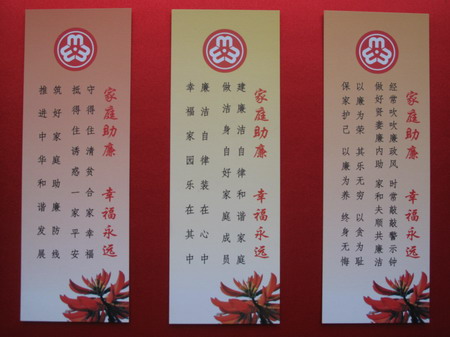 家庭助廉 幸福永远
守得住清贫合家幸福
抵得住诱惑一家平安
筑好家庭助廉防线
推进中华和谐发展
家庭助廉 幸福永远
建廉洁自律和谐家庭
做洁身自好家庭成员
廉洁自律装在心中
幸福家园乐在其中
家庭助廉 幸福永远
经常吹吹廉政风 时常敲敲警示钟
做好贤妻廉内助 家和夫顺共廉洁
以廉为荣 其乐无穷 以贪为耻
保家护己 以廉为养 终身无悔